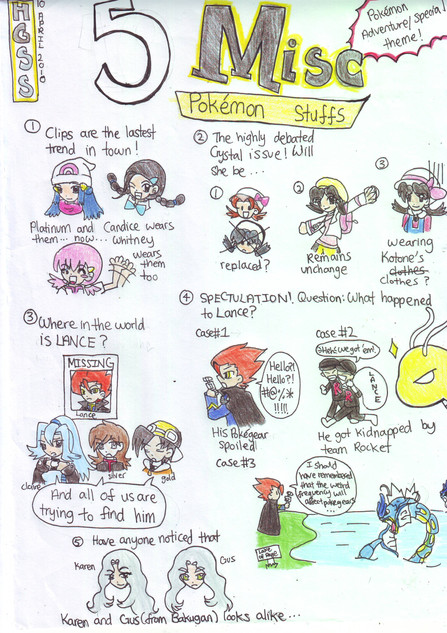 HGSS
10 APRIL 2010
5 Misc
Pokémon Stuffs
Pokémon
Adventure/Special
theme!
① Clips are the lastest
trend in town!
Platinum and
them... now...
Candice wears
Whitney
wears
them
too
② The highly debated
Crystal issue! Will
She be...
①
replaced?
②
Remains
unchange
③
wearing
Kotone's
clothes
clothes?
③ Where in the world
is LANCE?
MISSING
Lance
claire
silver
gold
And all of us are
trying to find him
④ SPECTULATION! Question: What happened
to Lance?
Case#1
Hello?!
Hello?!
#@%*
!!!!!
His Pokégear
spoiled!
case #2
Here! we got 'em!
LANCE
He got kidnapped by
team Rocket
Case #3
I should
have remembered
that the weird
frequency will
affect pokegears
Lake
of Rage
⑤ Have anyone noticed that
Karen
Gus
Karen and Gus (from Bakugan) looks alike...